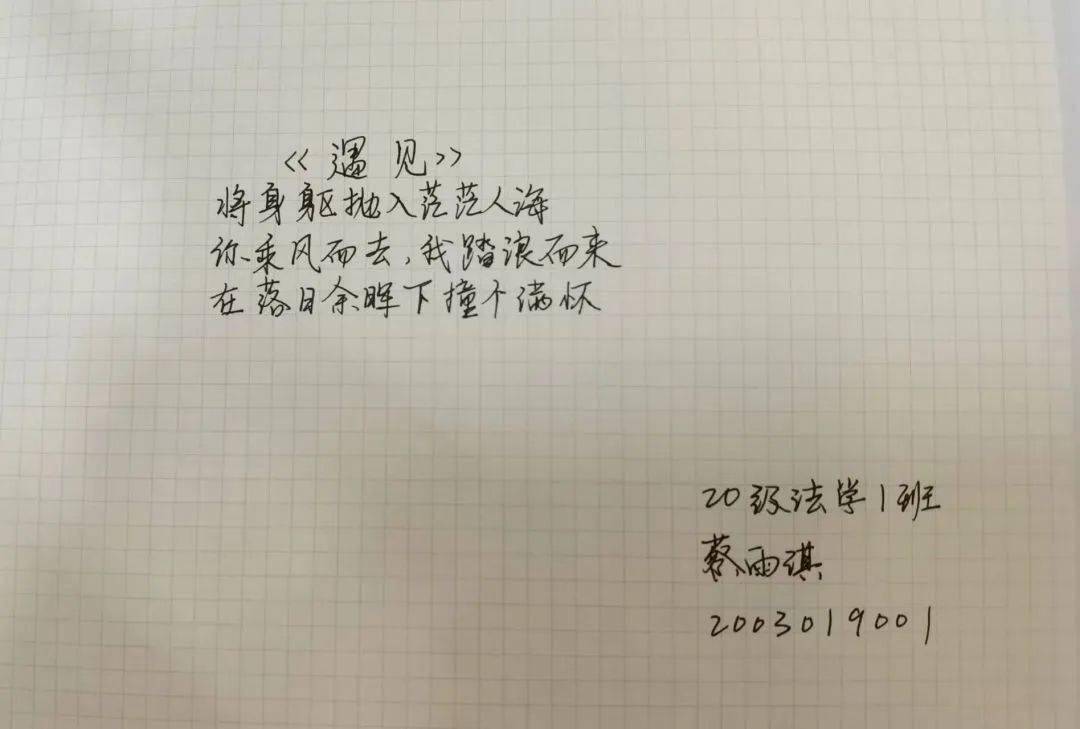 《遇见》
将身躯抛入茫茫人海
你乘风而去,我踏浪而来
在落日余晖下撞个满怀
20级法学1班
蔡雨琪
2003019001